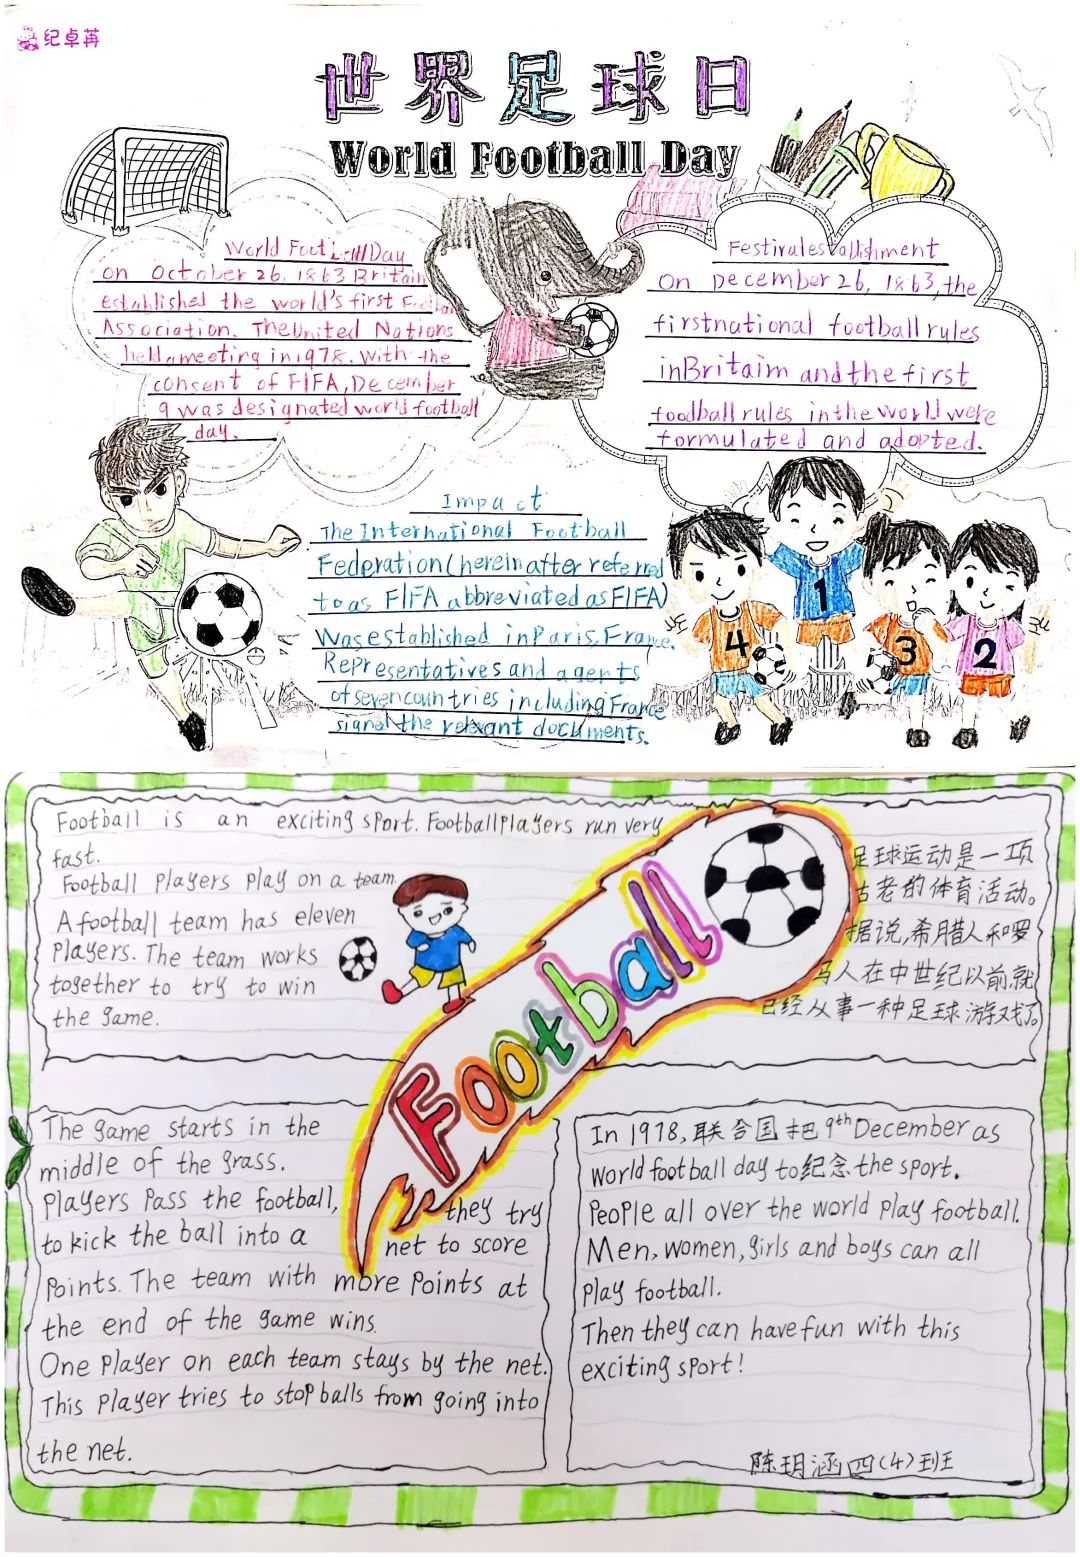 纪卓苒
世界足球日
World Football Day
World Football Day
on October 26, 1863 Britain
established the world's first Football
Association. The United Nations
held a meeting in 1978. With the
consent of FIFA, December
9 was designated world football
day.
Festival establishment
On December 26, 1863, the
first national football rules
in Britaim and the first
foodball rules in the world were
formulated and adopted.
Impact
The International Football
Federation (herein after referred
to as FIFA abbreviated as FIFA)
was established in Paris, France.
Representatives and agents
of seven countries including France
signed the relevant documents.
4
1
3
2
Football is an exciting sport. Football players run very
fast.
Football players play on a team.
A football team has eleven
players. The team works
together to try to win
the game.
Football
足球运动是一项
古老的体育活动。
据说,希腊人和罗
马人在中世纪以前就
已经从事一种足球游戏了。
The game starts in the
middle of the grass.
Players pass the football, they try
to kick the ball into a net to score
points. The team with more points at
the end of the game wins.
One player on each team stays by the net.
This player tries to stop balls from going into
the net.
In 1978, 联合国把 9th December as
world football day to纪念 the sport.
People all over the world play football.
Men, women, girls and boys can all
play football.
Then they can have fun with this
exciting sport!
陈玥涵四(4)班